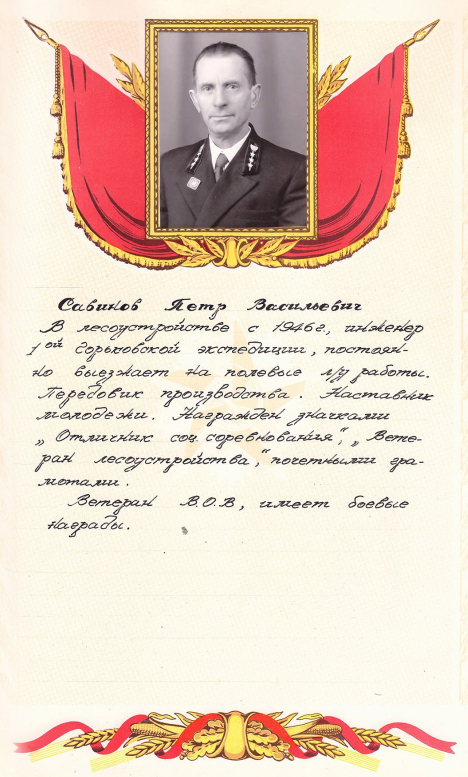 Савинов Петр Васильевич
В лесоустройстве с 1946г., инженер
1ой Горьковской экспедиции, постоян-
но выезжает на полевые л/у работы.
Передовик производства. Наставник
молодежи. Награжден значками
„Отличник соц. соревнования", „Вете-
ран лесоустройства," почетными гра-
мотами.
Ветеран В.О.В, имеет боевые
награды.